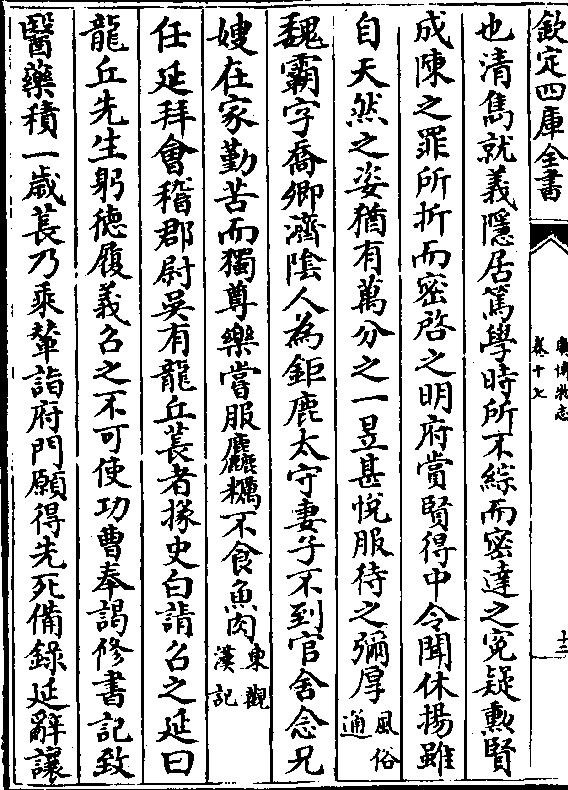 欽定四庫全書
廣博物志
卷十七
十三
也清雋就義隱居篤學時所不綜而密達之寃疑勲賢
成陳之罪所折而密啓之明府賞賢得中令聞休揚雖
自天然之姿猶有萬分之一昱甚悅服待之彌厚風俗通
魏霸字喬卿濟陰人為鉅鹿太守妻子不到官舍念兄
嫂在家勤苦而獨尊樂嘗服麤糲不食魚肉東觀漢記
任延拜會稽郡尉吳有龍丘萇者掾史白請召之延曰
龍丘先生躬徳履義召之不可使功曹奉謁修書記致
醫藥積一歲萇乃乘輦詣府門願得先死備錄延辭讓